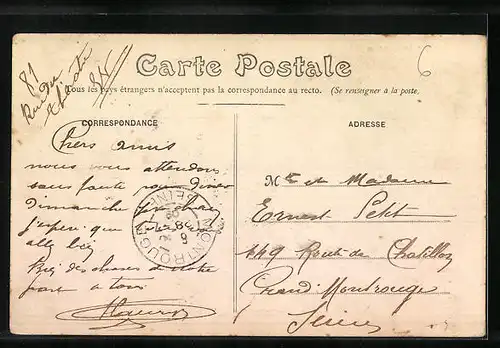 6
81
Carte Postale
Tous les pays étrangers n'acceptent pas la correspondance au recto. (Se renseigner à la poste.
CORRESPONDANCE
ADRESSE
Chers amis
nous vous attendons
sans faute pour diner
dimanche prochain
j'espère que
allez bien
Bien des choses de notre
part à tous
MONTROUGE
SEINE
Mr et Madame
Ernest Petit
119 Route de Chatillon
Grand Montrouge
Seine